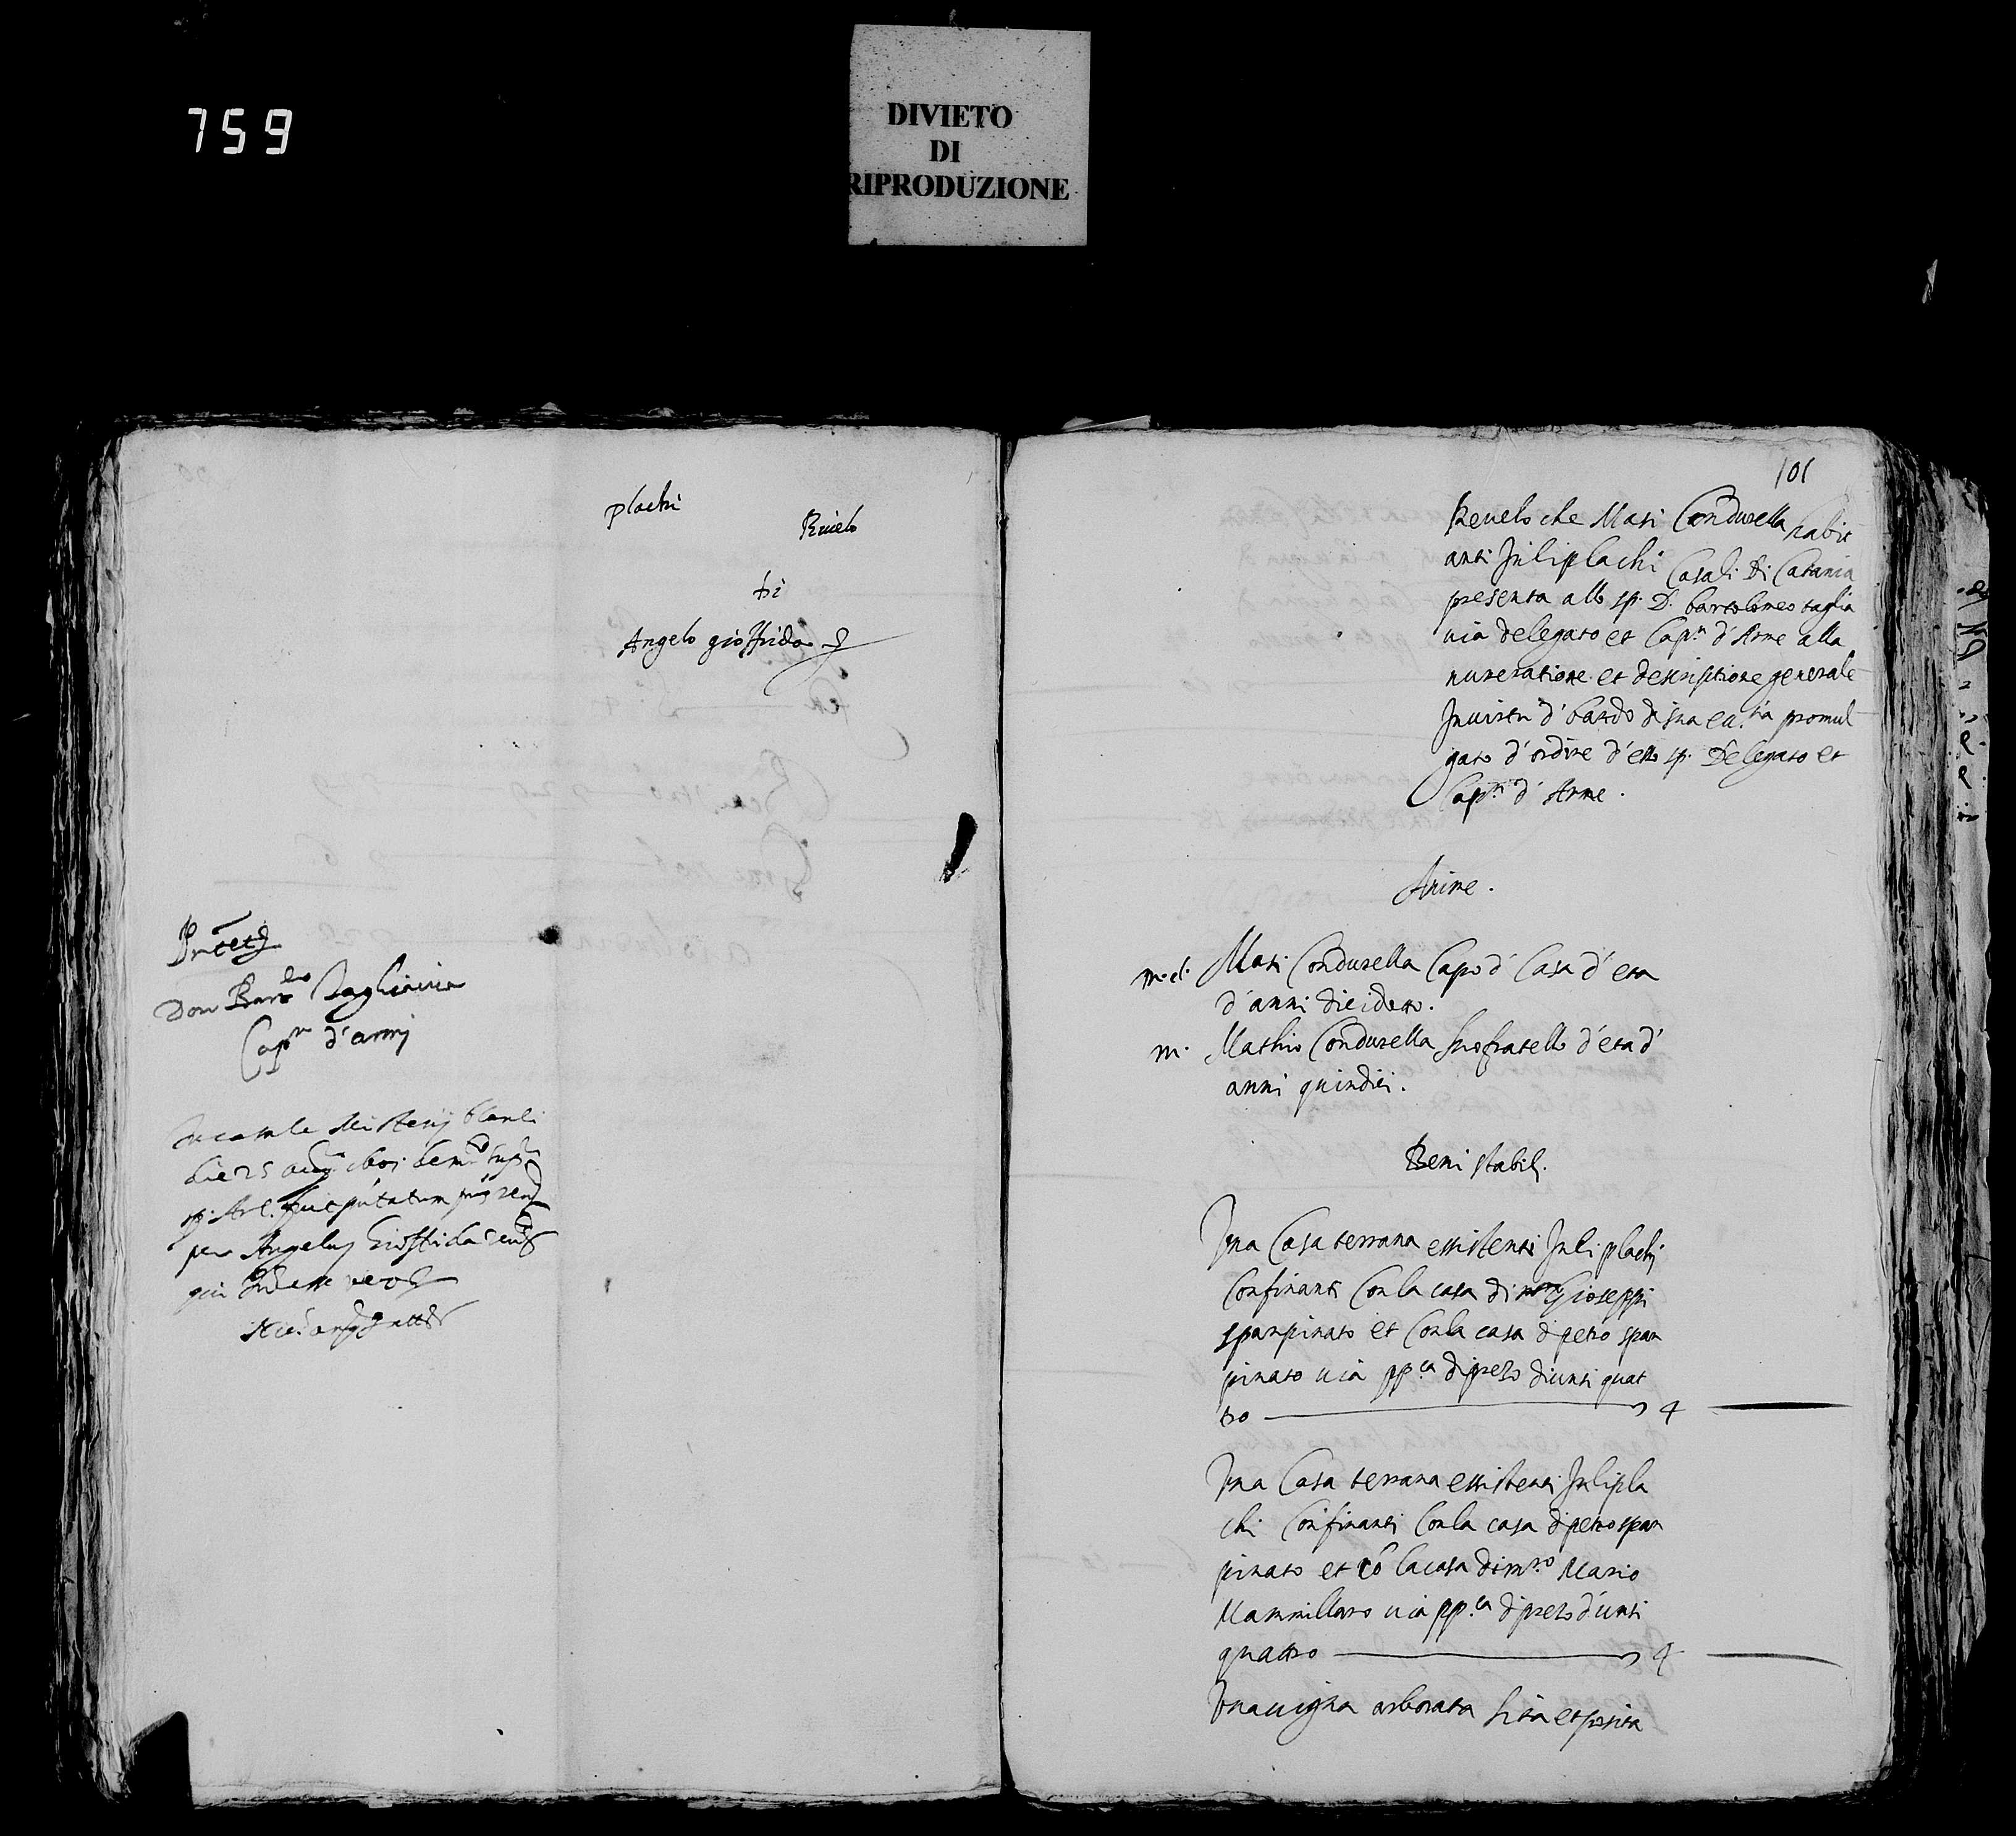 759
DIVIETO
DI
RIPRODUZIONE
plachi
Rivelo
di
Angelo gioffrida
Don Bar.meo Tagliavia
Cap.n d'armi
die 25 aug.
per Angelus Gioffrida
101
Revelo che Masi Condurella habit
anti Inli plachi Casali di Catania
presenta allo sp. D. bartolomeo taglia
via delegato et Cap.n d'Arme alla
numeratione et descriptione generale
In virtu d'bando di sua ecc.tia promul
gato d'ordine d'esso sp. Delegato et
Cap.n d'Arme.
Anime.
m.d. Masi Condurella Capo d'Casa d'eta
d'anni dicidotto.
m. Mathio Condurella suo fratello d'eta d'
anni quindici.
Beni stabili.
Una Casa terrana existenti Inli plachi
Confinanti Con la casa di Gioseppi
spampinato et Con la casa di petro span
pinato via pp.ca di prezo di unti quat
tro 4
Una Casa terrana existenti Inli pla
chi Confinanti Con la casa di petro span
pinato et cō la casa di m.ro Mario
Mammillaro via pp.ca di prezo d'unti
quattro 4
Una vigna arborata sita et posita